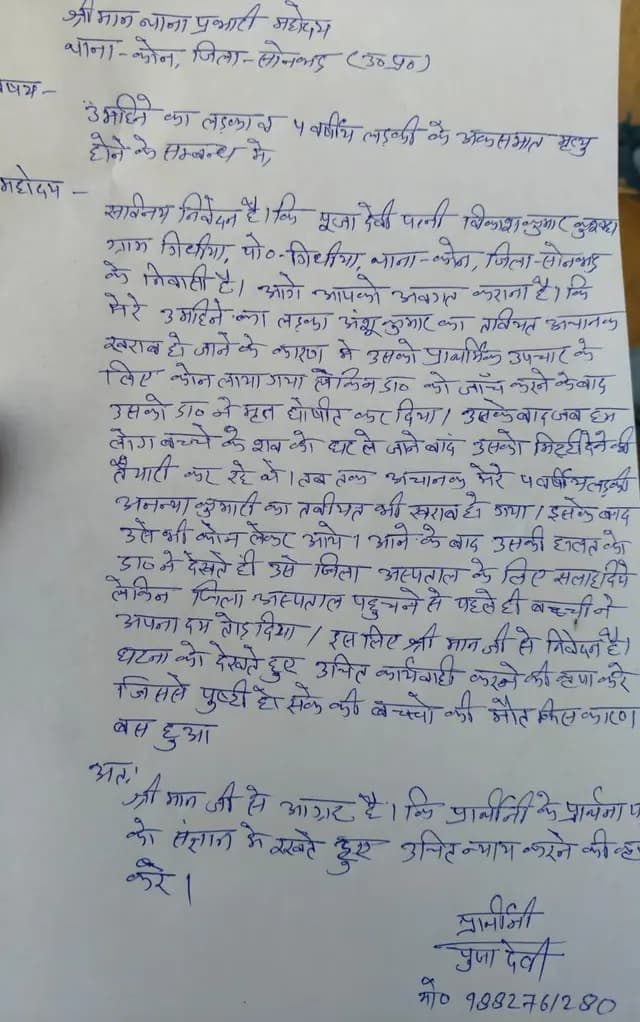 श्रीमान थाना प्रभारी महोदय
थाना-कोन, जिला-सोनभद्र (उ०प्र०)
विषय-
3 महिने का लड़का व 4 वर्षीय लड़की के अकसमात मृत्यु
होने के सम्बन्ध मे,
महोदय -
सविनय निवेदन है। कि पूजा देवी पत्नी विकाश कुमार
ग्राम गिधीया, पो०-गिधीया, थाना-कोन, जिला-सोनभद्र
के निवासी है। आगे आपको अवगत कराना है। कि
मेरे 3 महिने का लड़का अंशू कुमार का तवियत अचानक
खराब हो जाने के कारण मे उसको प्राथर्मिक उपचार के
लिए कोन लाया गया लेकिन डा० को जाँच करने के बाद
उसको डा० ने मृत घोषीत कर दिया। उसके बाद जब हम
लोग बच्चे के शव को घर ले जाने बाद उसको मिट्टी देने की
तैयारी कर रहे थे। तब तक अचानक मेरे 4 वर्षीय लड़की
अनन्या कुमारी का तवीयत भी खराब हो गया। इसके बाद
उसे भी कोन लेकर आये। आने के बाद उसकी हालत को
डा० ने देखते ही उसे जिला अस्पताल के लिए सलाह दिये
लेकिन जिला अस्पताल पहुचने से पहले ही बच्ची ने
अपना दम तोड़ दिया। इस लिए श्री मान जी से निवेदन है।
घटना को देखते हुए उचित कार्यवाही करने की कृपा करे
जिससे पुष्टी हो सके की बच्चो की मौत किस कारण
बस हुआ
अतः
श्री मान जी से आग्रह है। कि प्रार्थीनी के प्रार्थना प
को संज्ञान मे रखते हुए उचित न्याय करने की कृ
करे।
प्रार्थीनी
पुजा देवी
मो० 9882761280